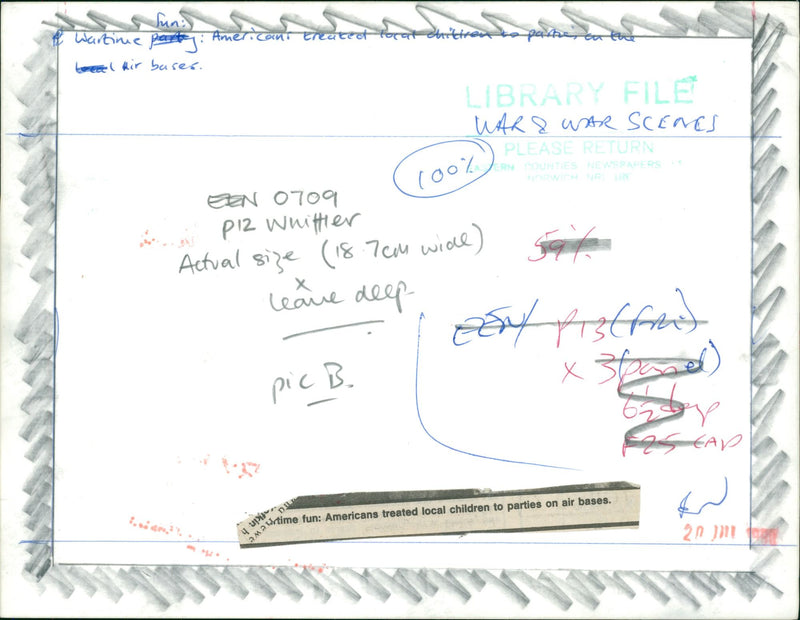 fun:
Wartime party: Americans treated local children to parties on the
local Air bases.
LIBRARY FILE
WAR & WAR SCENES
PLEASE RETURN
EASTERN COUNTIES NEWSPAPERS
NORWICH NR1 1RE
100%
EEN 0709
P12 Whittier
Actual size (18.7cm wide)
x
leave deep
pic B.
59%
EEN/ P13 (Fri)
x 3 (panel)
6½ deep
F25 CAP
rtime fun: Americans treated local children to parties on air bases.